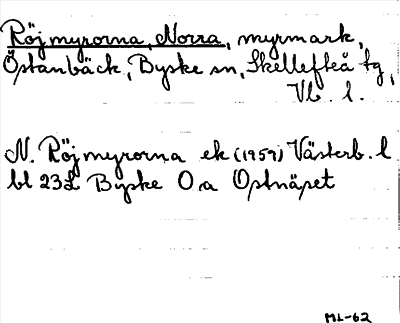 Röjmyrorna, Norra, myrmark,
Östanbäck, Byske sn, Skellefteå tg,
Vb. l.
N. Röjmyrorna ek (1959) Västerb. l
bl 23L Byske O.a Ostnäset
ML-62